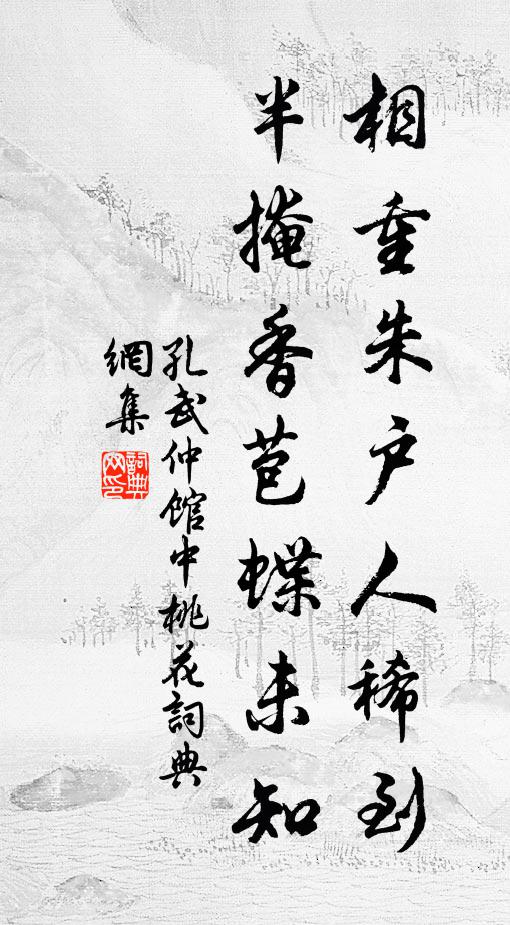 相重朱户人稀到
半掩香苞蝶未知
孔武仲館中桃花詞典
網集
詞典網印